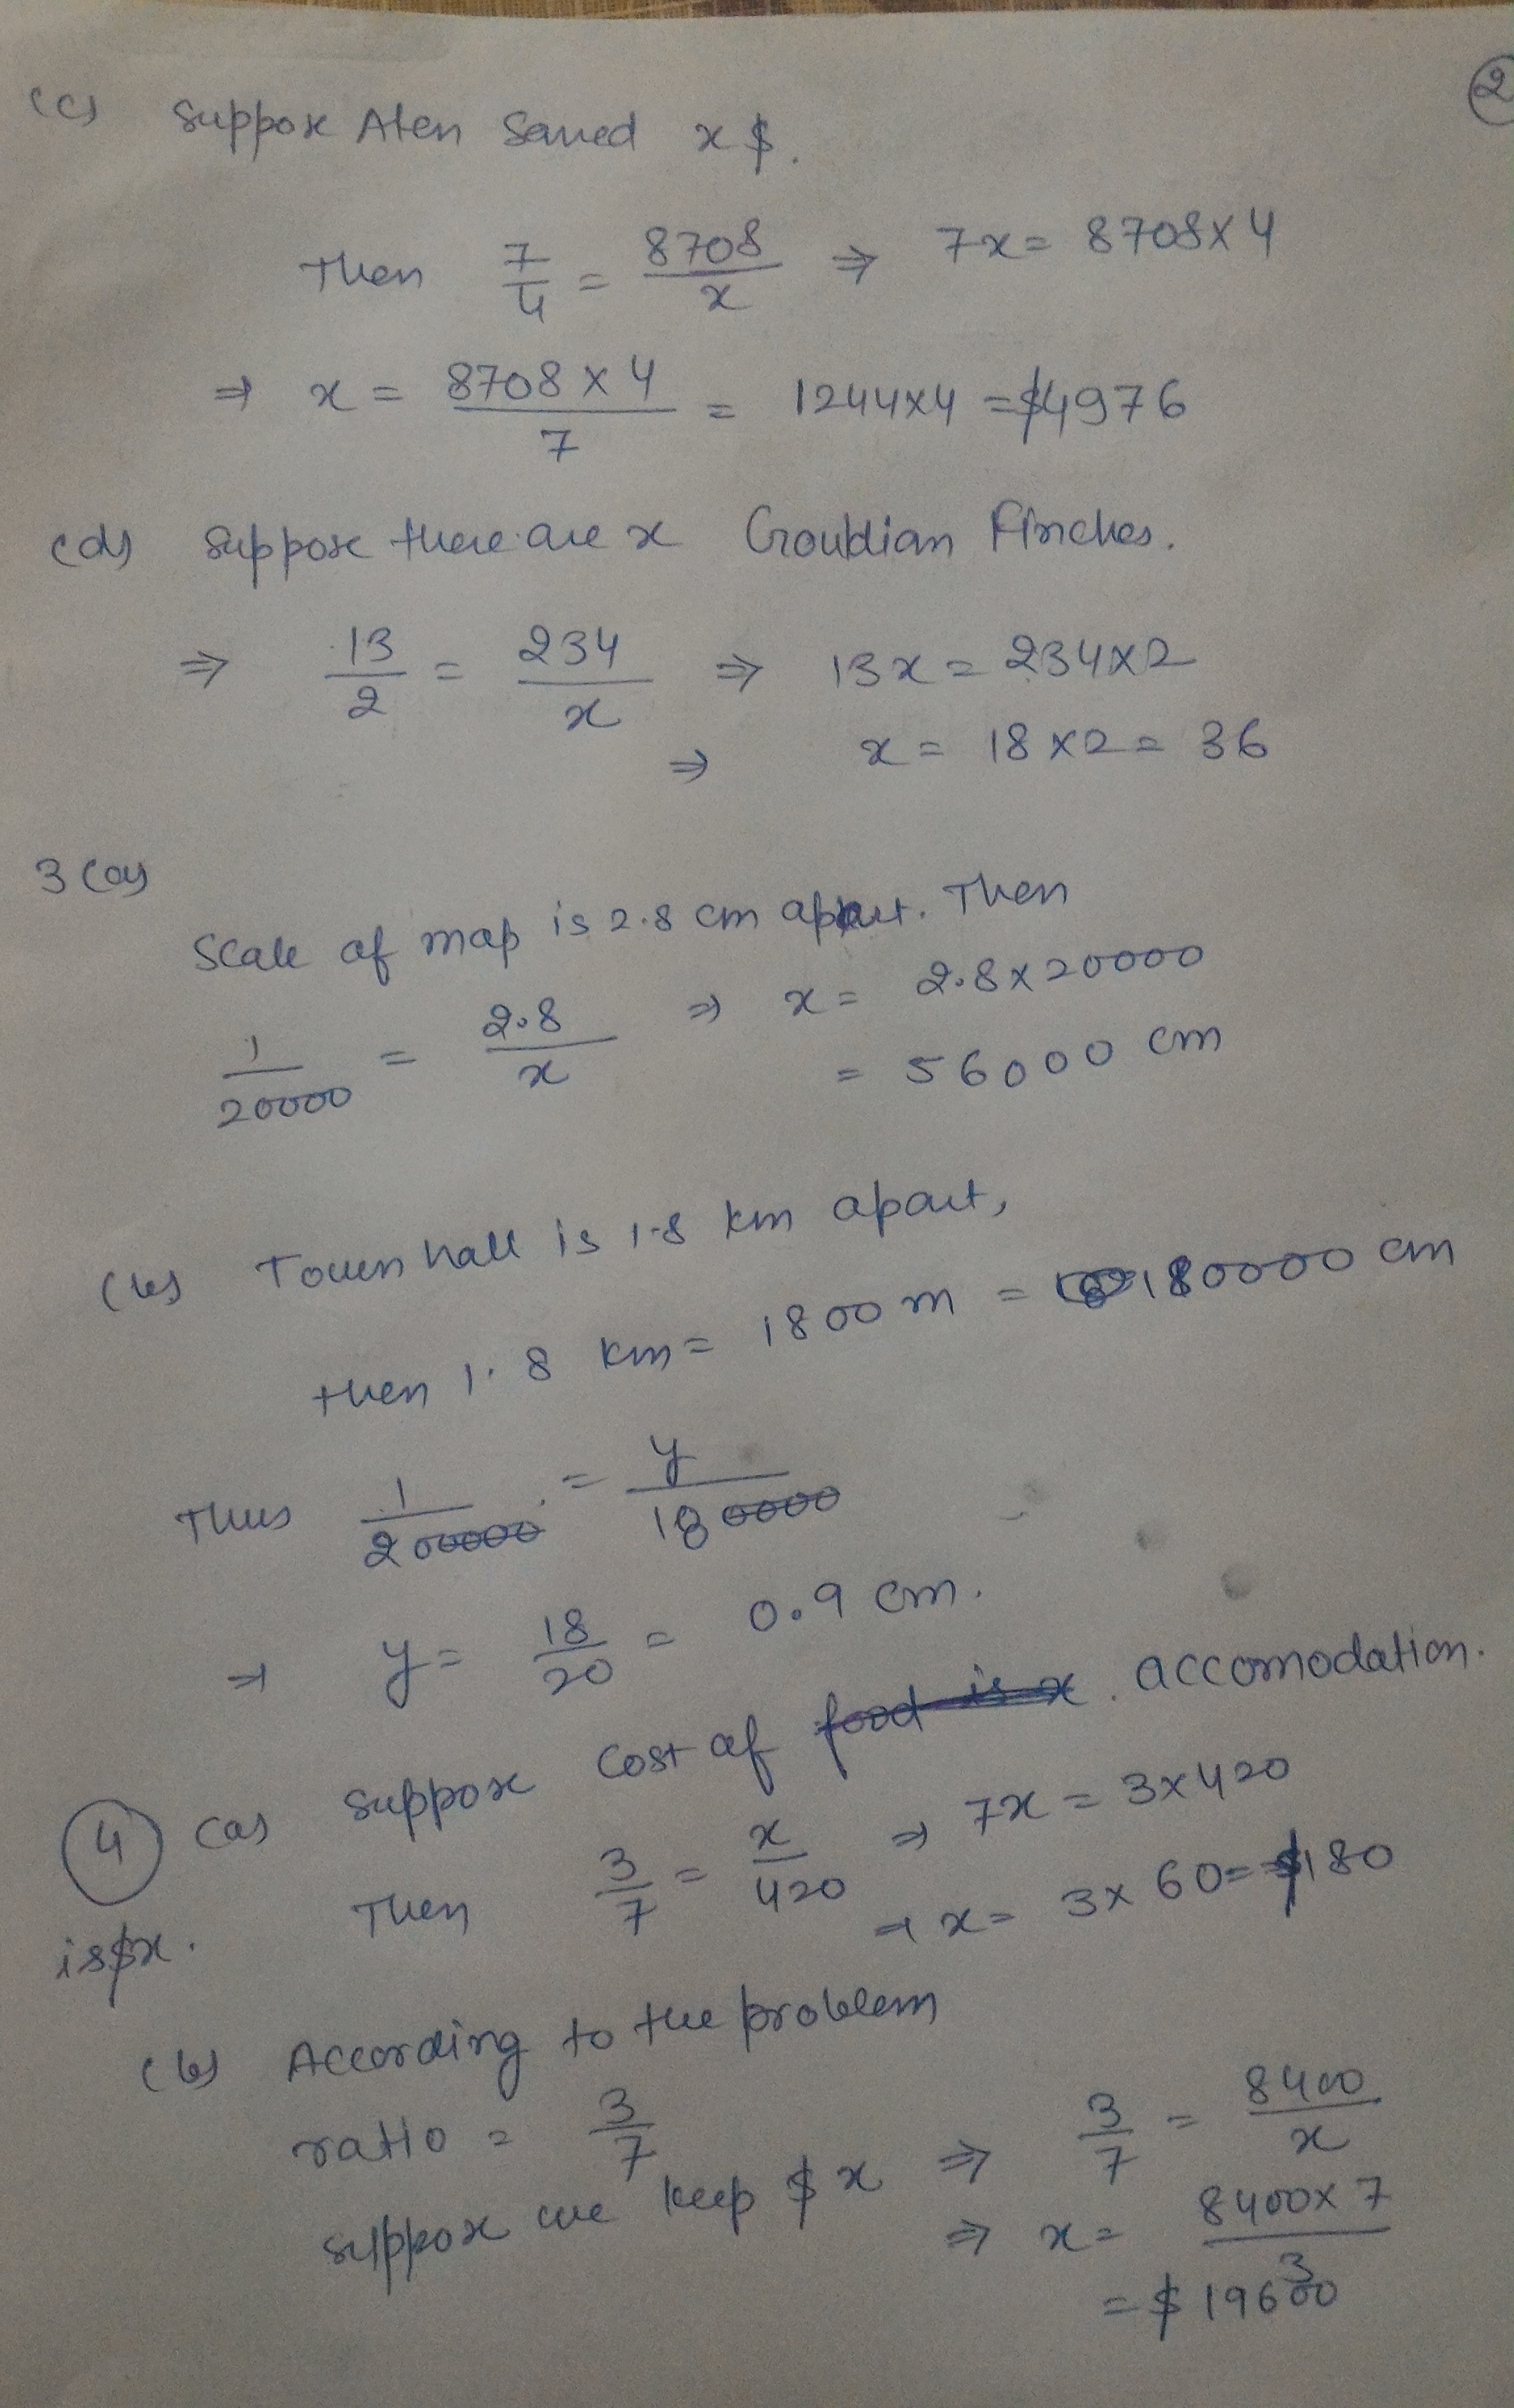 2
(c) Suppose Aten Saved x $.
Then 7/4 = 8708/x ⇒ 7x = 8708×4
⇒ x = 8708×4/7 = 1244×4 = $4976
(d) Suppose there are x Gouldian Finches.
⇒ 13/2 = 234/x ⇒ 13x = 234×2
⇒ x = 18×2 = 36
3 (a)
Scale of map is 2.8 cm apart. Then
1/20000 = 2.8/x ⇒ x = 2.8×20000
= 56000 cm
(b) Town hall is 1.8 km apart,
then 1.8 km = 1800 m = 180000 cm
Thus 1/200000 = y/180000
⇒ y = 18/20 = 0.9 cm.
4 (a) Suppose cost of food is x. accomodation.
is $x. Then 3/7 = x/420 ⇒ 7x = 3×420
⇒ x = 3×60 = $180
(b) According to the problem
ratio = 3/7
Suppose we keep $ x ⇒ 3/7 = 8400/x
⇒ x = 8400×7/3
= $ 19600